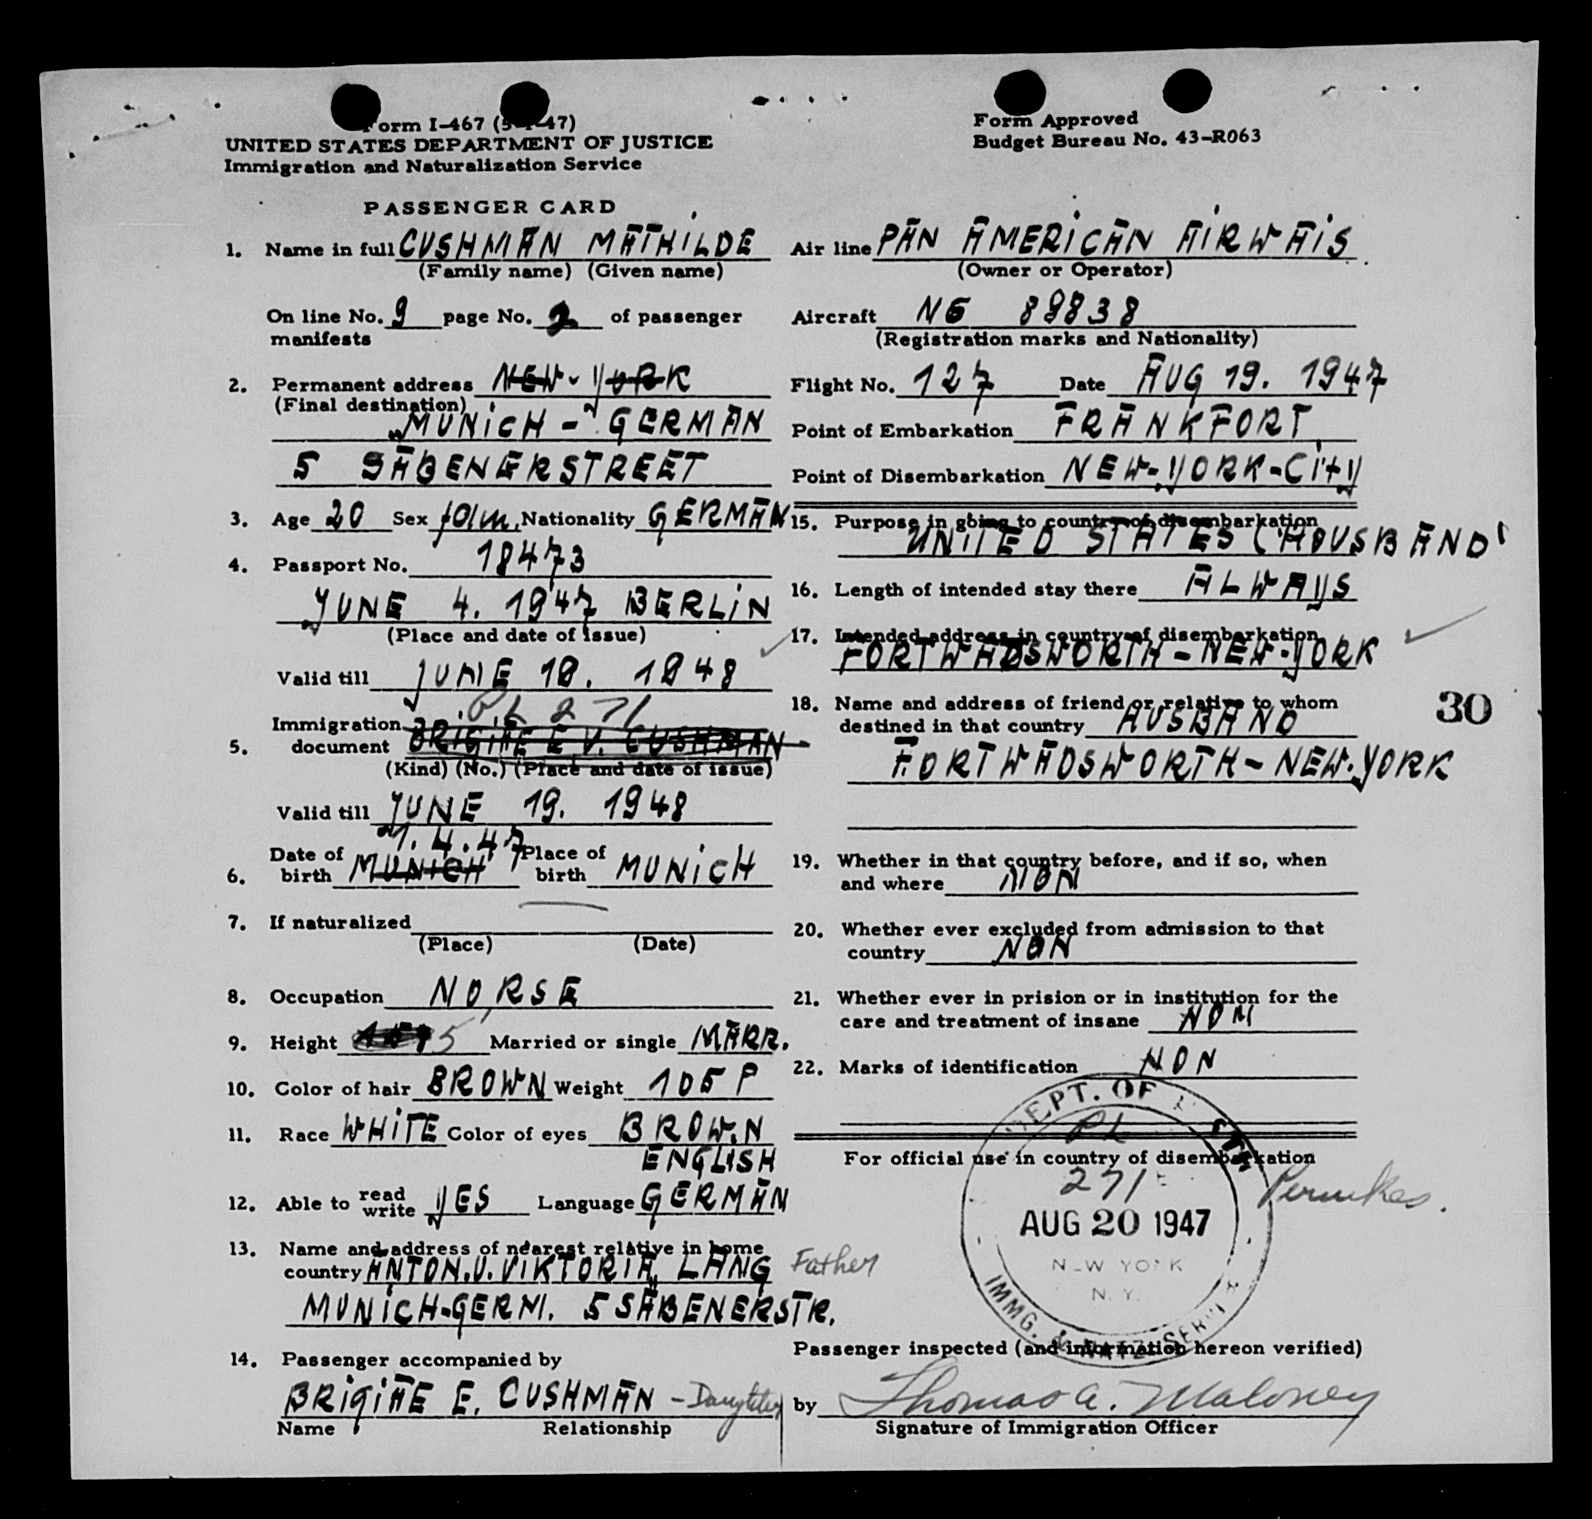 Form I-467 (5-1-47)
UNITED STATES DEPARTMENT OF JUSTICE
Immigration and Naturalization Service
PASSENGER CARD
1. Name in full CUSHMAN MATHILDE
(Family name) (Given name)
On line No. 9 page No. 2 of passenger
manifests
2. Permanent address NEW-YORK
(Final destination)
MUNICH - GERMAN
5 SÄBENERSTREET
3. Age 20 Sex Nationality GERMAN
4. Passport No. 18473
JUNE 4. 1947 BERLIN
(Place and date of issue)
Valid till JUNE 18. 1948
PL 271
Immigration
5. document BRIGITTE E V. CUSHMAN
(Kind) (No.) (Place and date of issue)
Valid till JUNE 19. 1948
1.4.47
6. Date of birth MUNICH Place of birth MUNICH
7. If naturalized
(Place) (Date)
8. Occupation NORSE
9. Height 5' Married or single MARR.
10. Color of hair BROWN Weight 105 P
11. Race WHITE Color of eyes BROWN
ENGLISH
12. Able to read write YES Language GERMAN
13. Name and address of nearest relative in home
country ANTON.U.VIKTORIA LANG Father
MUNICH-GERM. 5 SÄBENERSTR.
14. Passenger accompanied by
BRIGITTE E. CUSHMAN - Daughter
Name Relationship
Form Approved
Budget Bureau No. 43-R063
Air line PAN AMERICAN AIRWAIS
(Owner or Operator)
Aircraft NG 88838
(Registration marks and Nationality)
Flight No. 127 Date AUG 19. 1947
Point of Embarkation FRANKFORT
Point of Disembarkation NEW-YORK-CITY
15. Purpose in going to country of disembarkation
UNITED STATES (HOUSBAND)
16. Length of intended stay there ALWAYS
17. Intended address in country of disembarkation
FORTWADSWORTH-NEW-YORK
18. Name and address of friend or relative to whom
destined in that country HUSBAND
FORTWADSWORTH-NEW-YORK
30
19. Whether in that country before, and if so, when
and where NON
20. Whether ever excluded from admission to that
country NON
21. Whether ever in prision or in institution for the
care and treatment of insane NON
22. Marks of identification NON
For official use in country of disembarkation
DEPT. OF
PL
271
AUG 20 1947
NEW YORK
N.Y.
IMMG. & NATZ. SERVICE
Passenger inspected (and information hereon verified)
by Thomas A. Maloney
Signature of Immigration Officer